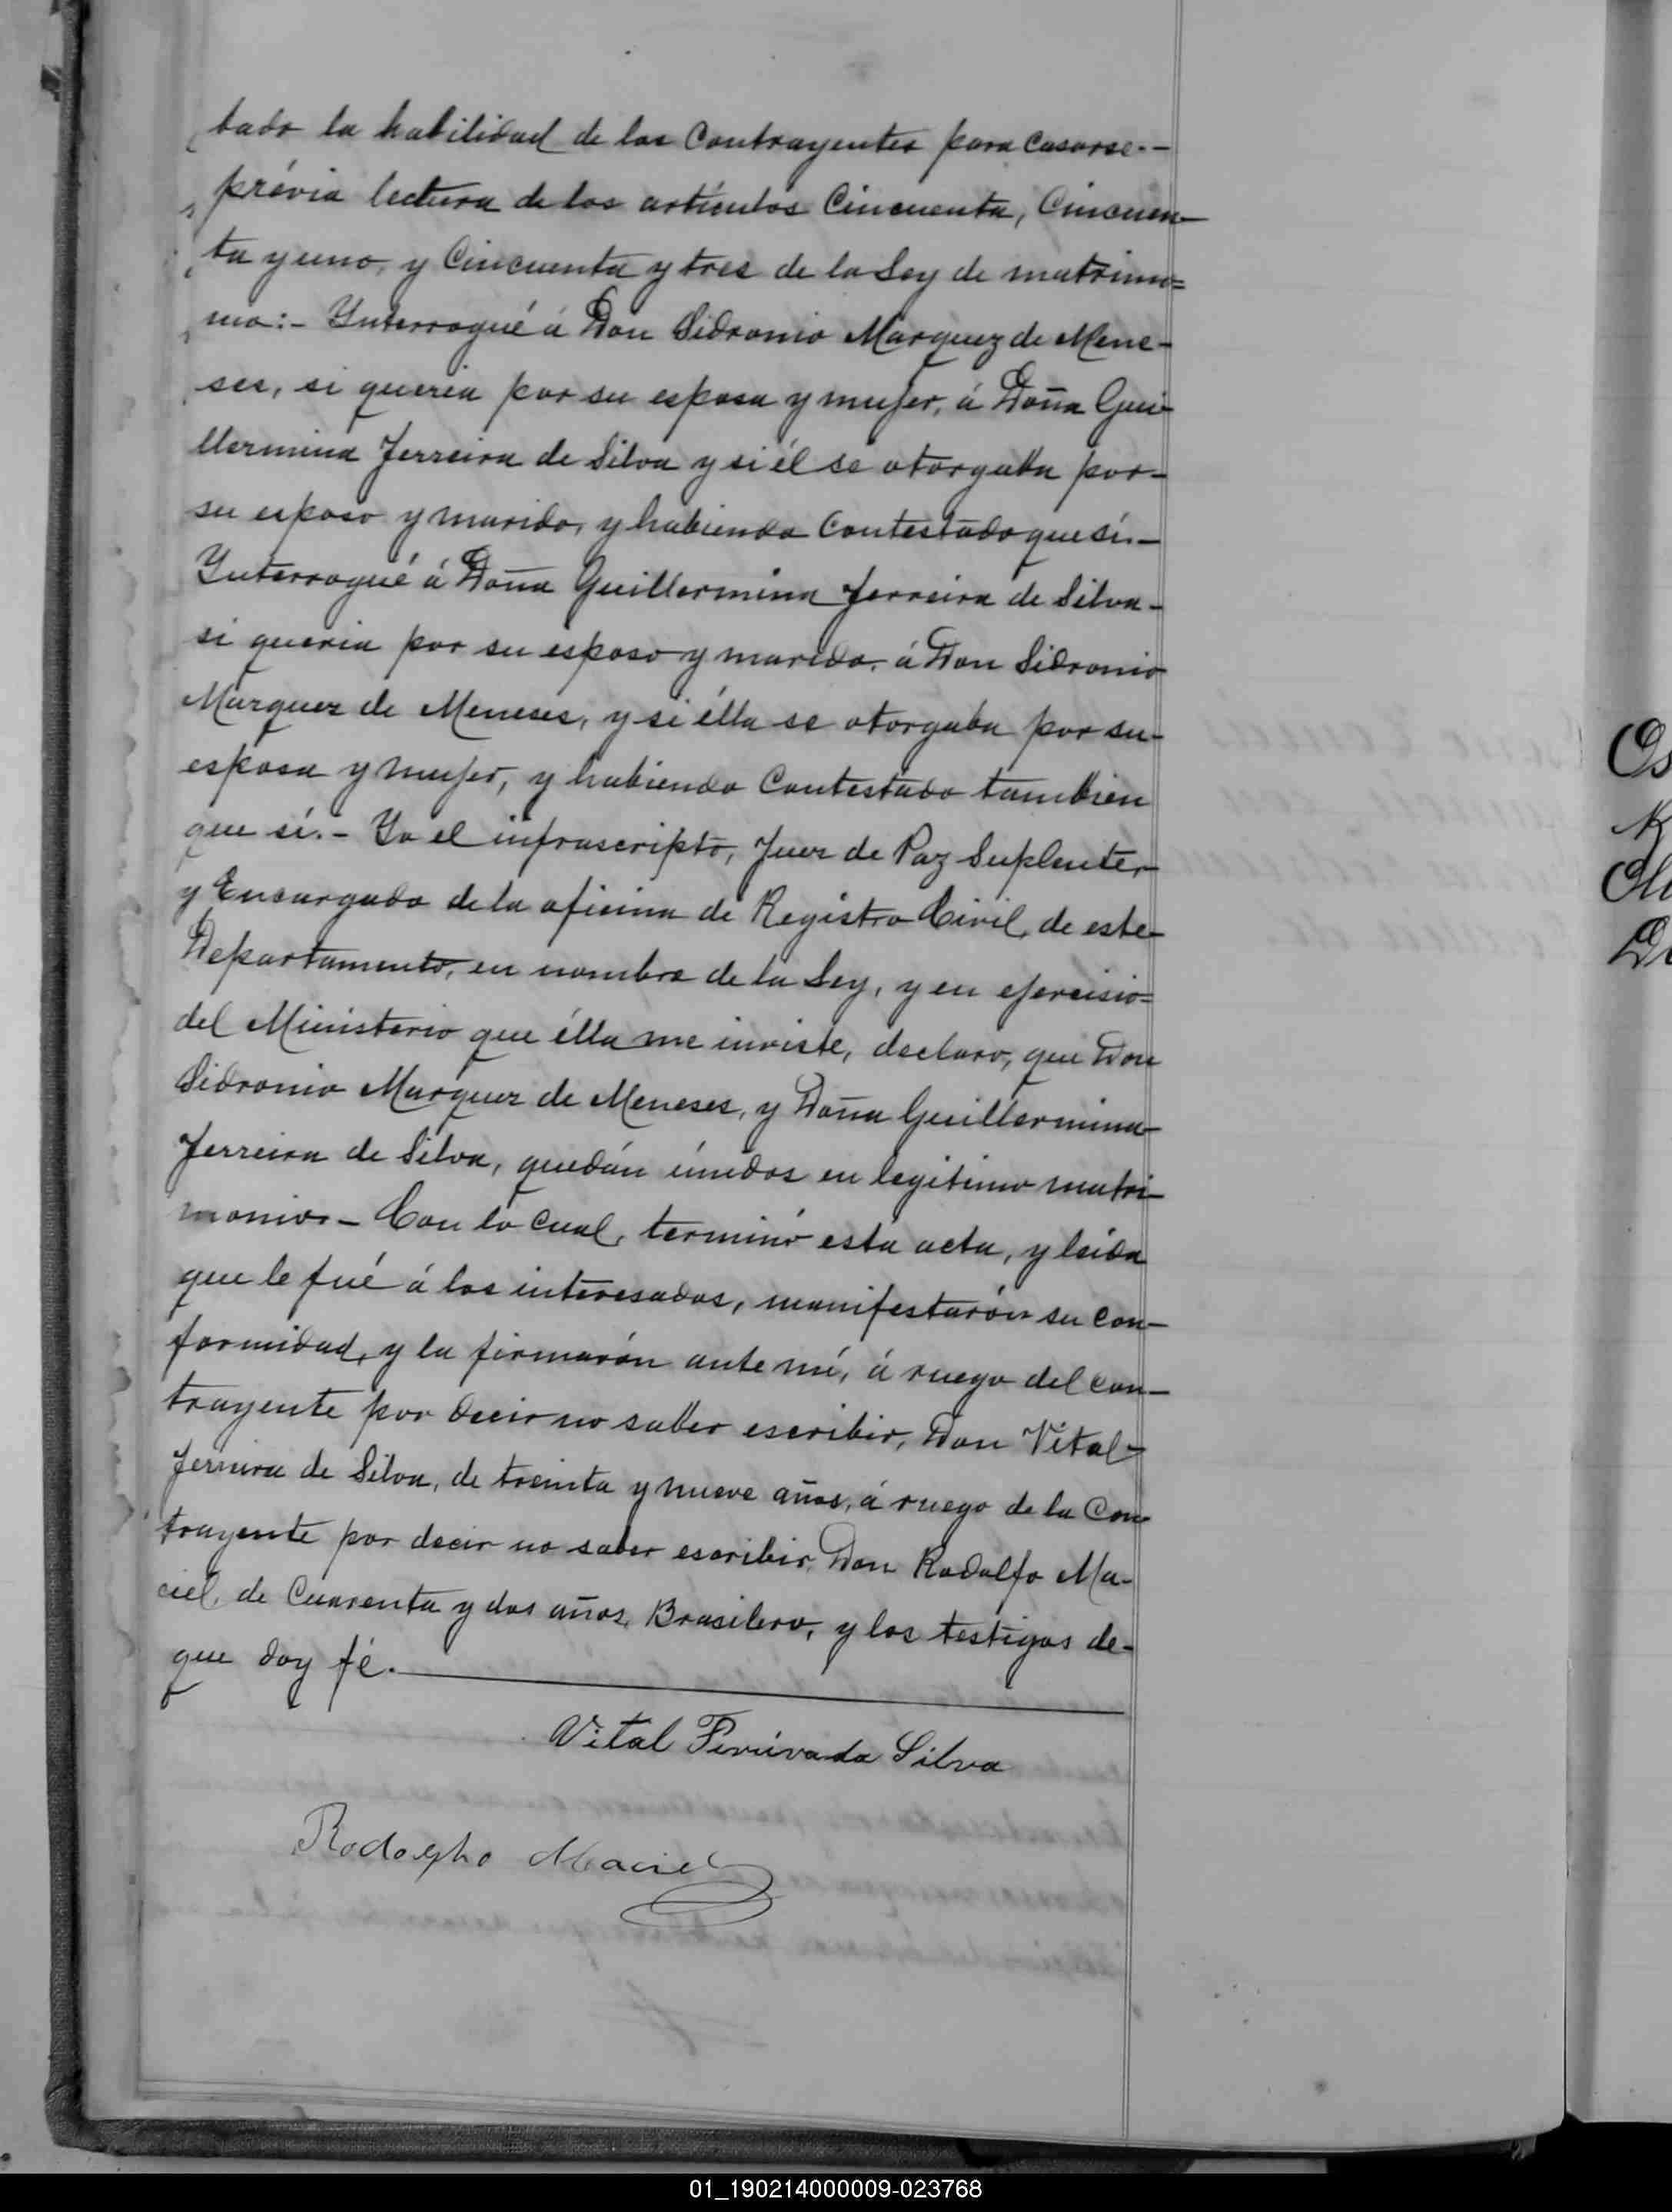 tado la habilidad de los Contrayentes para Casarse.-
prévia lectura de los artículos Cincuenta, Cincuen-
ta y uno, y Cincuenta y tres de la Ley de matrimo=
nio:- Ynterrogué á Don Sidronio Marquez de Mene-
ses, si queria por su esposa y mujer, á Doña Gui-
llermina Ferreira de Silva y si él se otorgaba por-
su esposo y marido, y habiendo Contestado que sí.-
Ynterrogué á Doña Guillermina Ferreira de Silva-
si queria por su esposo y marido, á Don Sidronio
Marquez de Meneses, y si élla se otorgaba por su-
esposa y mujer, y habiendo Contestado tambien
que sí.- Yo el infrascripto, Juez de Paz Suplente,-
y Encargado de la oficina de Registro Civil, de este-
Departamento, en nombre de la Ley, y en ejercisio=
del Ministerio que élla me inviste, declaro, que Don
Sidronio Marquez de Meneses, y Doña Guillermina-
Ferreira de Silva, quedán únidos en legitimo matri-
monio.- Con lo Cual, terminó esta acta, y leida
que le fué á los interesados, manifestarón su Con-
formidad, y la firmarón ante mí, á ruego del Con-
trayente por decir no saber escribir, Don Vital-
Ferreira de Silva, de treinta y nueve años, á ruego de la Con-
trayente por decir no saber escribir, Don Rodolfo Ma-
ciel, de Cuarenta y dos años, Brasilero, y los testigos de-
que doy fé.
Vital Ferreira da Silva
Rodolpho Maciel
01_190214000009-023768